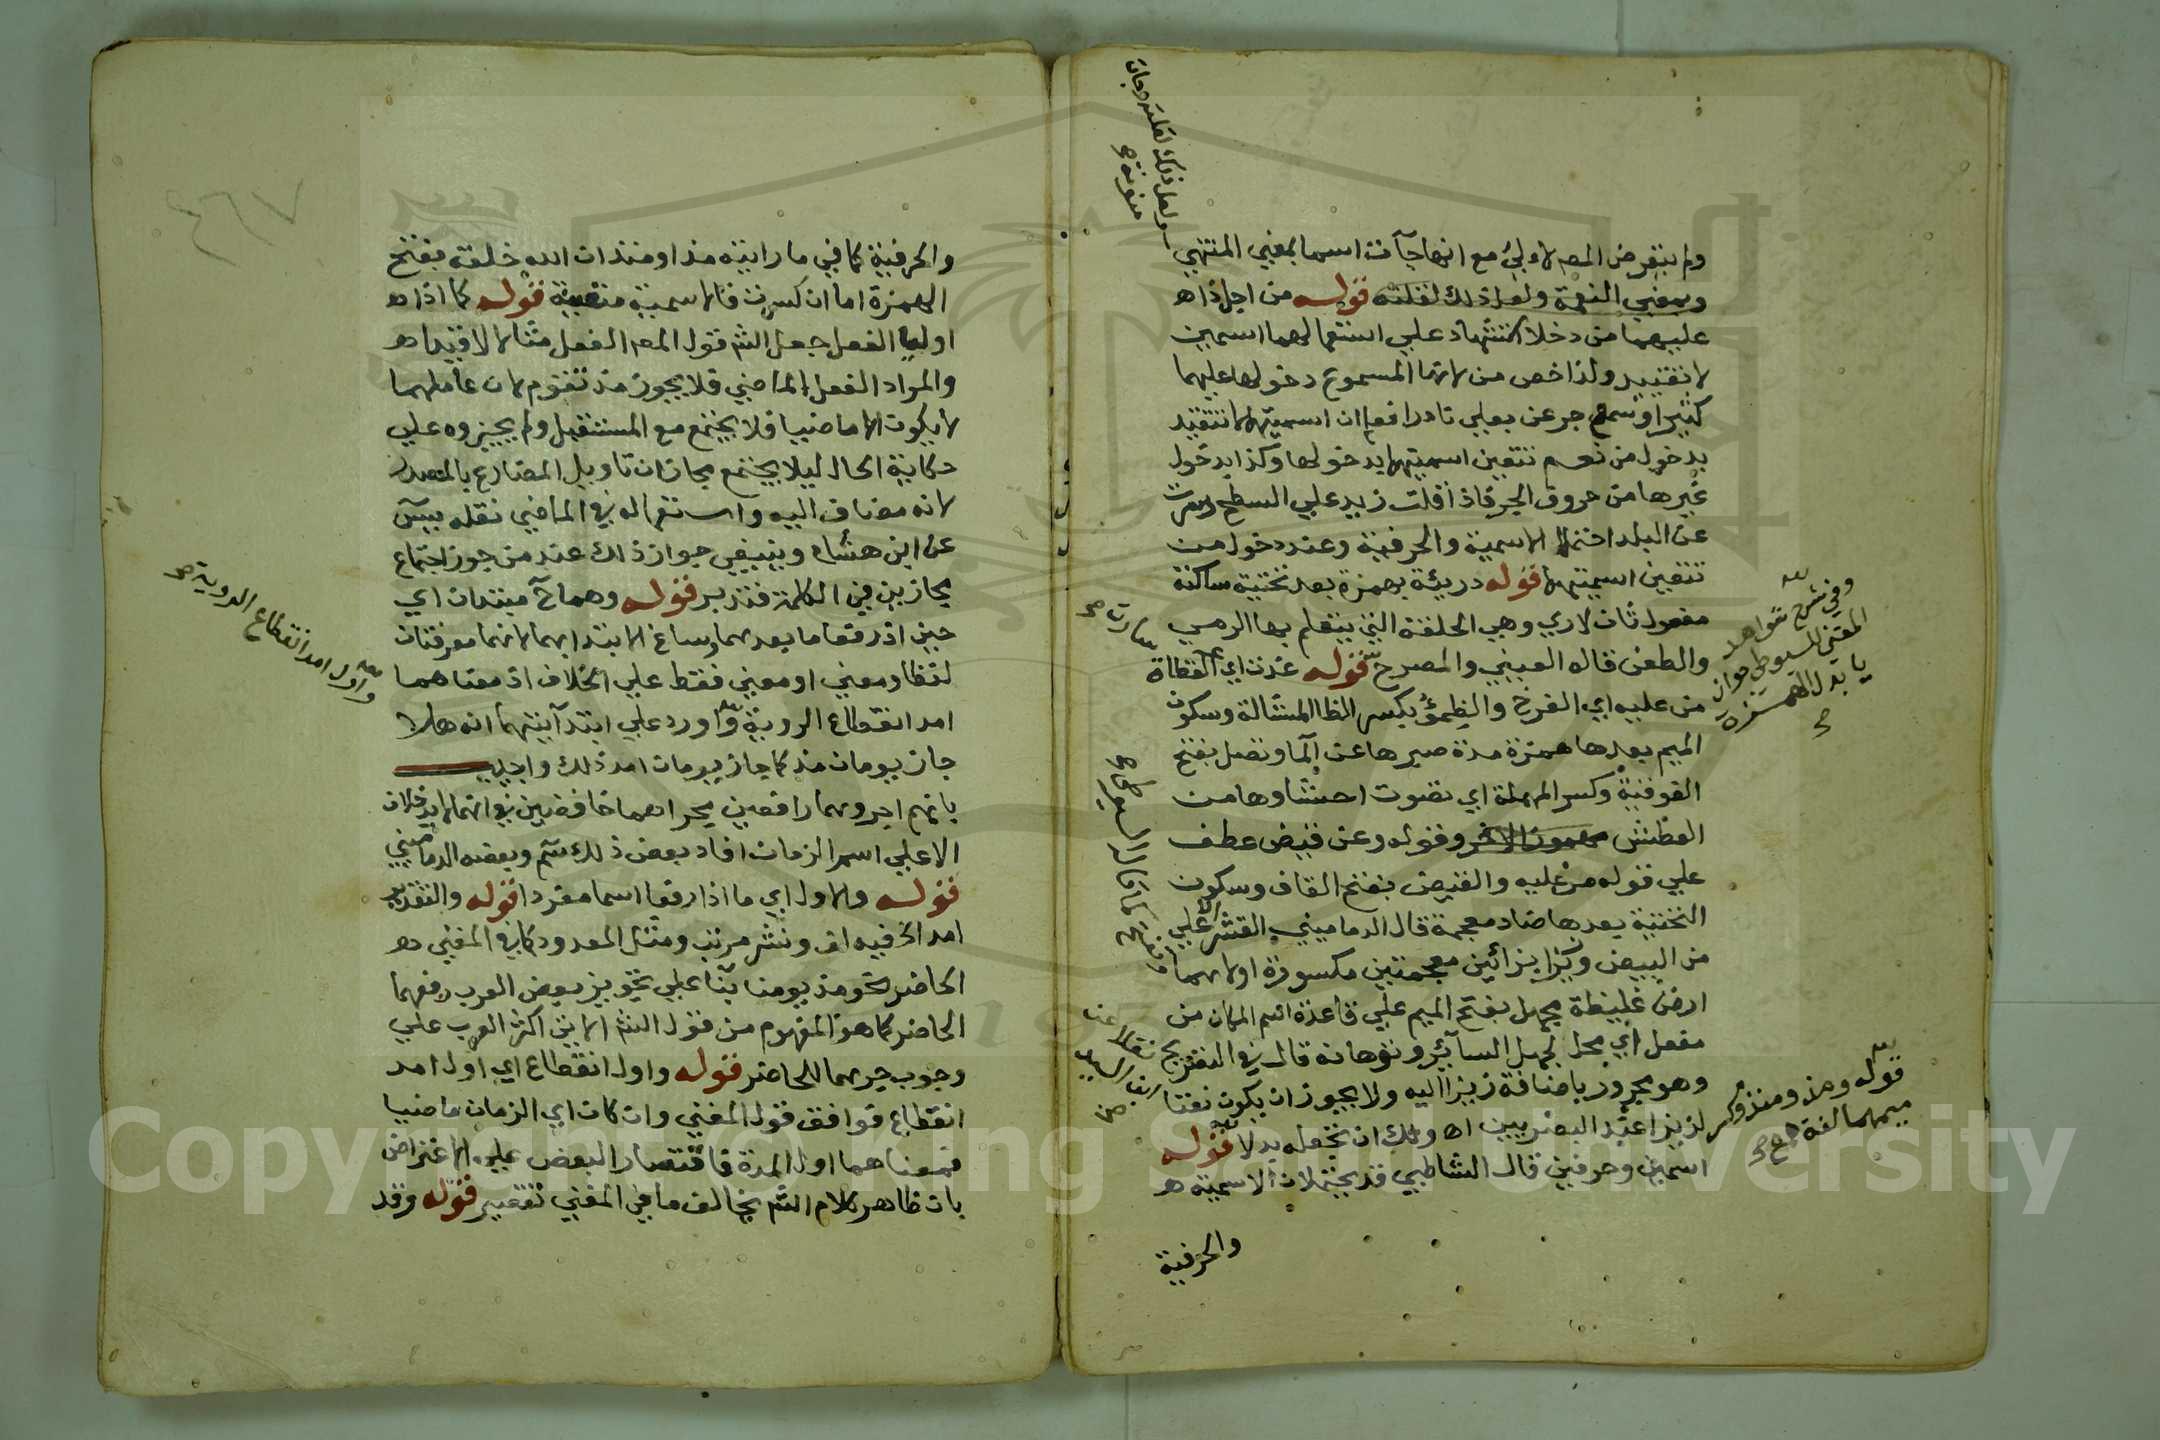 ولم يتعرض المص لالى مع انها جآت اسما بمعني المنتهي
وبمعني النعمة ولعل ذلك لقلته قوله من اجل ذا اه
عليهما من دخلا استشهاد علي استعمالهما اسمين
لا تقييد ولذا خص من لانها المسموع دخولها عليهما
كثيرا وسمع جر عن بعلي نادرا فعلم ان اسميتهما لا تتقيد
بدخول من نعم تتعين اسميتهما بدخولها وكذا بدخول
غيرها من حروف الجر فاذا قلت زيد علي السطح وسرت
عن البلد احتملا الاسمية والحرفية وعند دخول من
تتعين اسميتهما قوله دريئة بهمزة بعد تحتية ساكنة
مفعول ثان لاري وهي الحلقة التي يتعلم بها الرمي
والطعن قاله العيني والمصرح قوله غدت اي القطاة
من عليه اي الفرخ والظمؤ بكسر الظا المشالة وسكون
الميم بعدها همزة مدة صبرها عن الما وتصل بفتح
الفوقية وكسر المهملة اي تصوت احشاوها من
العطش وقوله وعن قيض عطف
علي قوله من عليه والقيض بفتح القاف وسكون
التحتية بعدها ضاد معجمة قال الدماميني القشر الاعلي
من البيض وزيزا بزائين معجمتين مكسورة اولاهما
ارض غليظة مجهل بفتح الميم علي قاعدة اسم المكان من
مفعل اي محل لجهل السائر وتوهانه قال في التصريح
وهو مجرور باضافة زيزا اليه ولا يجوز ان يكون نعتا
لزيزا عند البصريين اه ولك ان تجعله بدلا قوله
اسمين وحرفين قال الشاطبي قد يحتملان الاسمية
والحرفية
ولعل ذلك لقلته وجات
منونة صح
وفي شرح شواهد
المغني للسيوطي جواز
ابدال الهمزة
قوله ومذ ومنذ وكسر
ميمهما لغة
والحرفية كما في ما رايته مذ او منذ ان الله خلقه بفتح
الهمزة اما ان كسرت فالاسمية متعينة قوله كما اذا
اوليا الفعل جعل الشم قول المص الفعل مثالا لا قيدا
والمراد الفعل الماضي فلا يجوز مذ تقوم لان عاملهما
لا يكون الا ماضيا فلا يجتمع مع المستقبل ولم يجيزوه علي
حكاية الحال ليلا يجتمع مجازان تاويل المضارع بالمصدر
لانه مضاف اليه واستعماله في الماضي نقله يس
عن ابن هشام وينبغي جواز ذلك عند من جوز اجتماع
مجازين في الكلمة فتدبر قوله وهما ح مبتدان اي
حين اذ رفعا ما بعدهما وساغ الابتدا بهما لانهما معرفتان
لفظا ومعني او معني فقط علي الخلاف اذ معناهما
امد انقطاع الروية واورد علي ابتدآيتهما انه هلا
جاز يومان مذ كما جاز يومان امد ذلك واجيب
بانهم اجروهما رافعين مجراهما خافضين في انهما لا يدخلان
الا علي اسم الزمان افاد بعض ذلك سم وبعضه الدماميني
قوله والاول اي ما اذا رفعا اسما مفردا قوله والتقدير
امد الخ فيه لف ونشر مرتب ومثل المعدود كما في المغني
الحاضر نحو مذ يومنا بنآ علي تجويز بعض العرب رفعهما
الحاضر كما هو المفهوم من قول الشم الاتي اكثر العرب علي
وجوب جرهما للحاضر قوله واول انقطاع اي اول امد
انقطاع فوافق قول المغني وان كان اي الزمان ماضيا
فمعناهما اول المدة فاقتصار البعض علي الاعتراض
بان ظاهر كلام الشم يخالف ما في المغني تقصير قوله وقد
واول امد انقطاع الروية صح
٤٦٧
Copyright © King Saud University